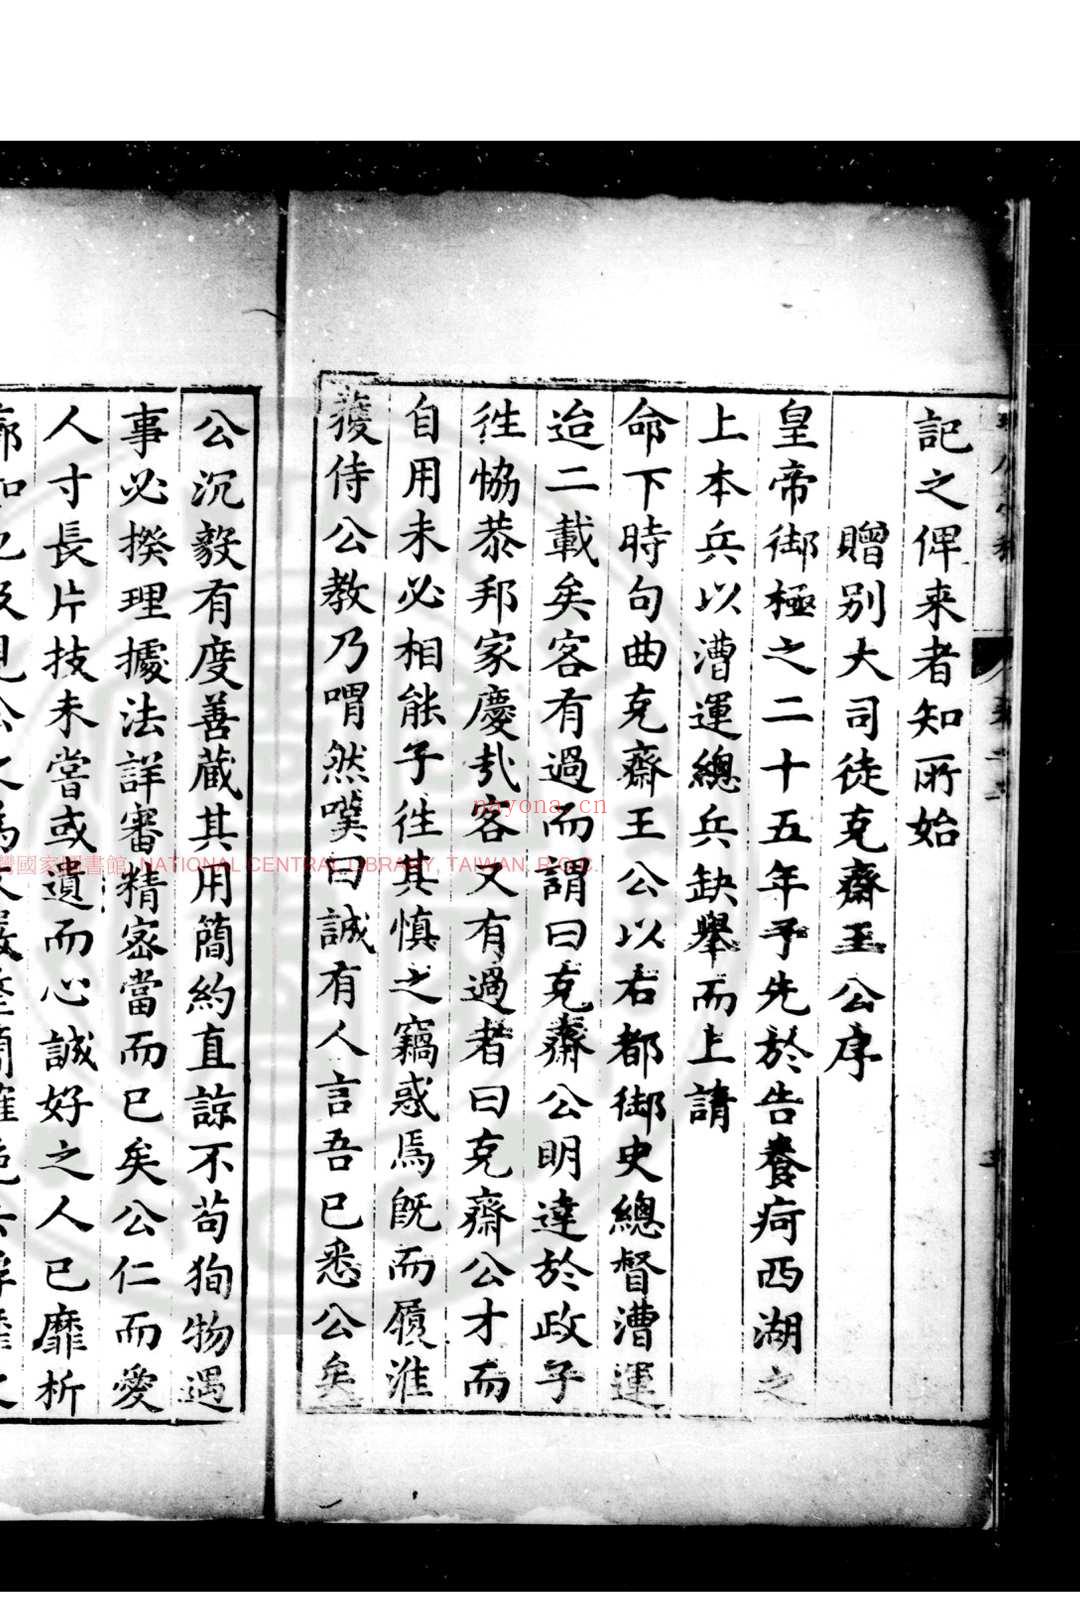 記之俾来者知所始
贈别大司徒克齋王公序
皇帝御極之二十五年予先於告養疴西湖之
上本兵以漕運總兵缺舉而上請
命下時句曲克齋王公以右都御史總督漕運
迨二載矣客有過而謂曰克齋公明達於政子
徃恊恭邦家慶㢤客又有過者曰克齋公才而
自用未必相能子徃其慎之竊惑焉旣而履淮
獲侍公教乃喟然嘆曰誠有人言吾已悉公矣
公沉毅有度善蔵其用簡約直諒不苟狥物遇
事必揆理據法詳審精密當而已矣公仁而愛
人寸長片技未嘗或遺而心誠好之人已靡析
nayona.cn
灣國家圖書館, NATIONAL CENTRAL LIBRARY, TAIWAN, R.O.C.